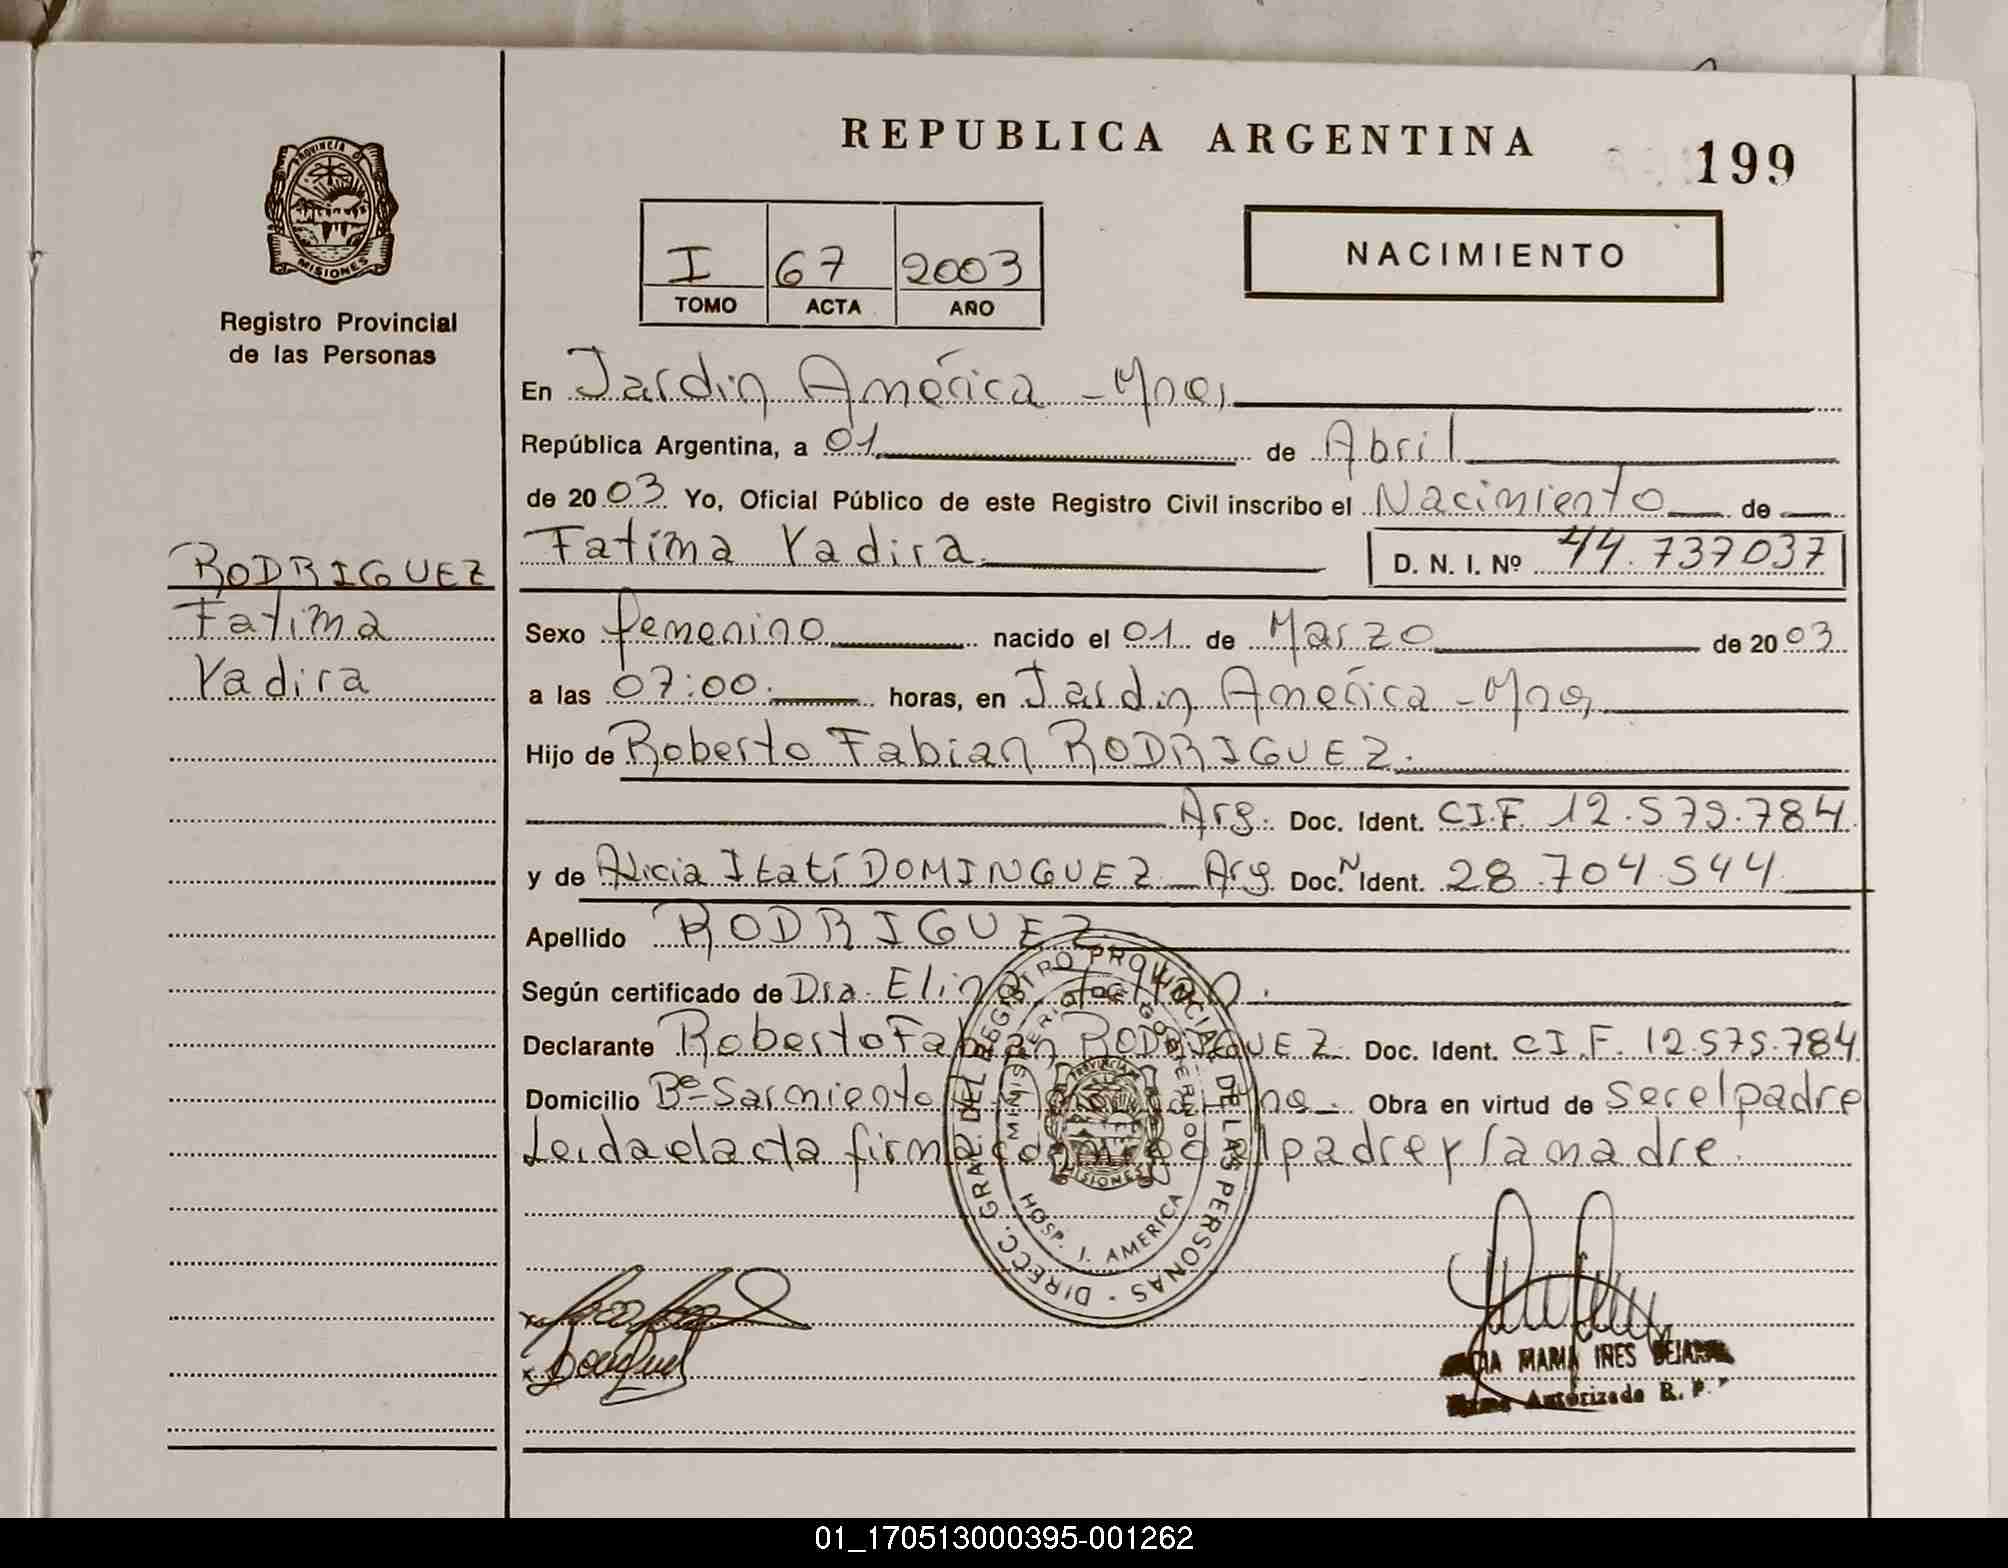 REPUBLICA ARGENTINA
199
PROVINCIA DE
MISIONES
Registro Provincial
de las Personas
I 67 2003
TOMO ACTA AÑO
NACIMIENTO
En Jardin América - Mnes,
República Argentina, a 01 de Abril
de 2003 Yo, Oficial Público de este Registro Civil inscribo el Nacimiento de
Fatima Yadira. D. N. I. Nº 44.737037
RODRIGUEZ
Fatima
Yadira
Sexo femenino nacido el 01 de Marzo de 2003
a las 07:00. horas, en Jardin América - Mnes,
Hijo de Roberto Fabian RODRIGUEZ.
Arg. Doc. Ident. C.I.F. 12.575.784
y de Alicia Itatí DOMINGUEZ Arg. Doc. N Ident. 28.704.544
Apellido RODRIGUEZ
Según certificado de Dra. Elina
Declarante Roberto Fabian RODRIGUEZ. Doc. Ident. C.I.F. 12.575.784
Domicilio Bº Sarmiento Obra en virtud de ser el padre
Leida el acta firma conmigo el padre y la madre.
DIRECC. GRAL. DEL REGISTRO PROVINCIAL DE LAS PERSONAS
MINISTERIO DE GOBIERNO
PROVINCIA DE
MISIONES
HOSP. J. AMERICA
MARIA INES BEJARANO
Autorizada R. P.
01_170513000395-001262